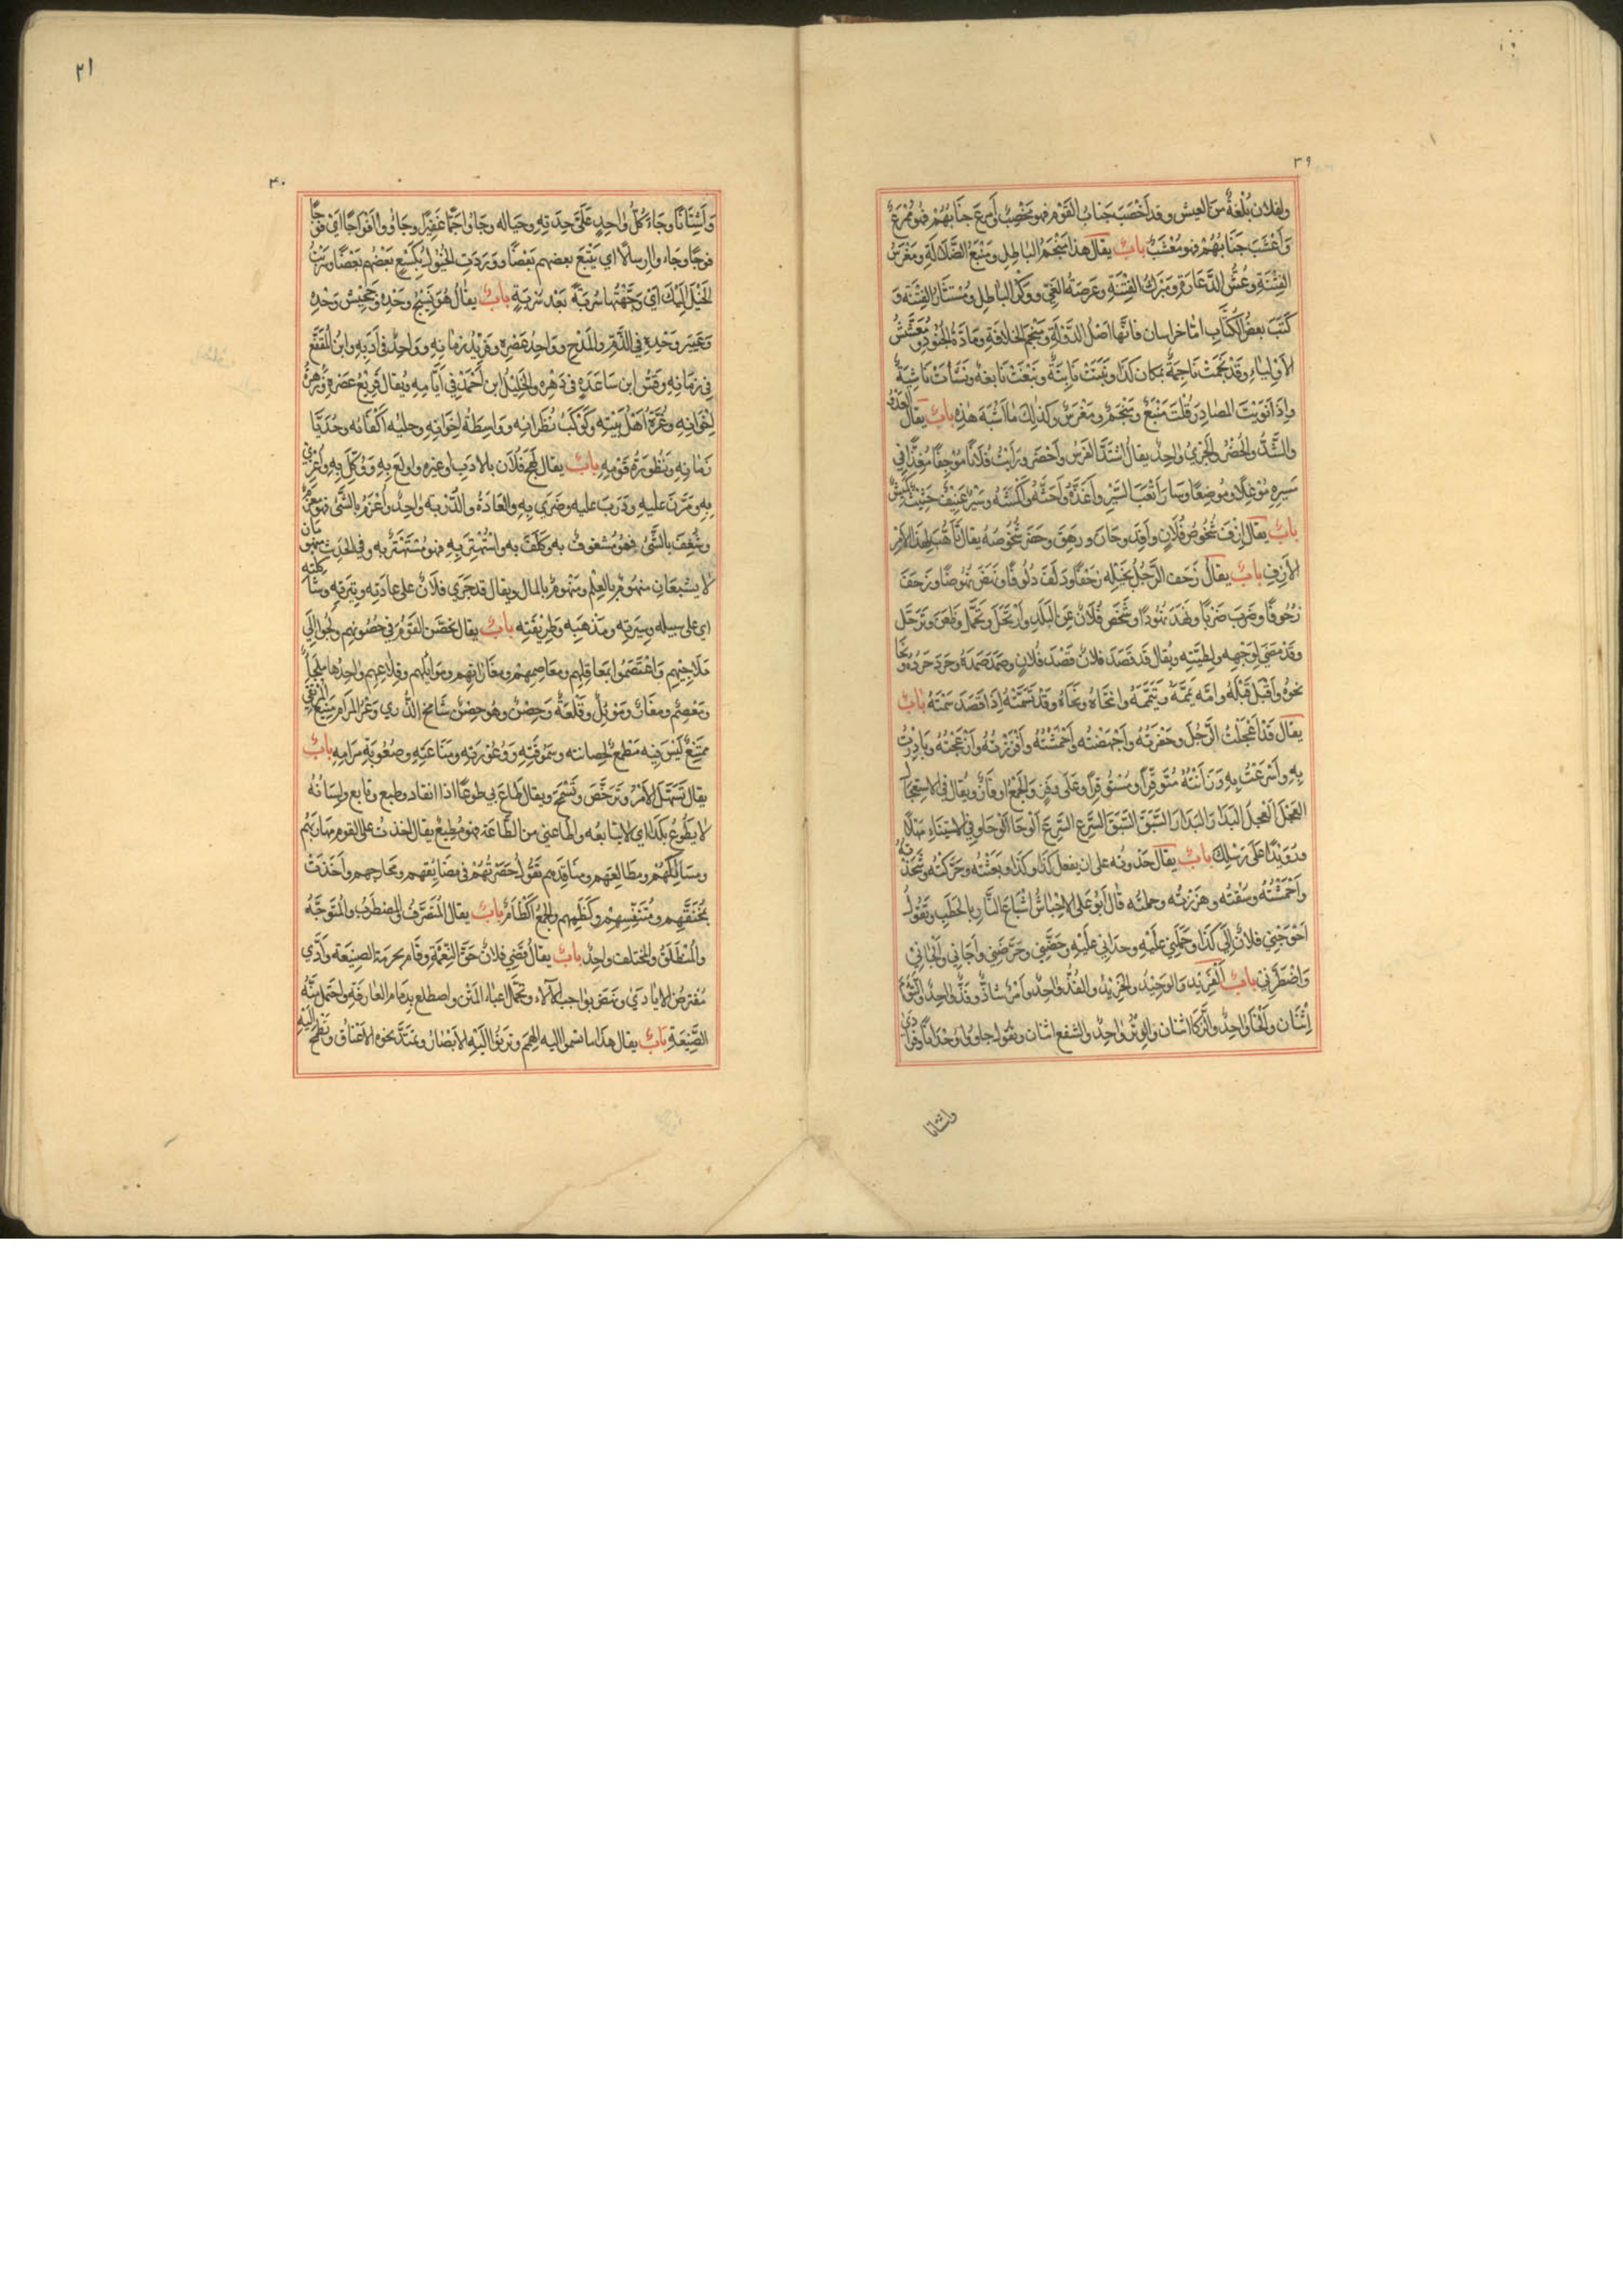 ٣٩
ولفلان بلغة من العيش وقد أخصب جناب القوم فهو مخصب وأمرع جنابهم فهو ممرع
وأعشب جنابهم فهو معشب باب يقال هذا منجم الباطل ومنبع الضلالة ومغرس
الفتنة وعش الدعارة ومبرك الفتنة وعرصة الغي ووكر الباطل ومستثار الفتنة و
كتب بعض الكتاب اما خراسان فانها اصل الدولة ومنجم الخلافة ومادة الجنود ومعشش
الاولياء وقد نجمت ناجمة بمكان كذا ونبتت نابتة ونبغت نابغة ونشأت ناشية
واذا نويت المصادر قلت منبع ومنجم ومغرس وكذلك ما اشبه هذه باب يقال العدو
والشد والحضر والجري واحد يقال اشتد الفرس وأحضر ورايت فلانا موجفا مغذا في
سيره موغلا وموضعا وسار أتعب السير وأغذه وأحثه وأكمشه وسير عنيف حثيث كميش
باب يقال ازف شخوص فلان وأفد وحان ورهق وحضر شخوصه يقال تأهب لهذا الامر
الازف باب يقال زحف الرجل بخيله زحفا ودلف دلوفا ونهض نهوضا وزحف
زحوفا وضرب ضربا ونهد نهودا وشخص فلان عن البلد وارتحل وتحمل وظعن وترحل
وقد مضى لوجهه ولطيته ويقال قد قصد فلان قصد فلان وصمد صمده وحرد حرده ونحا
نحوه وأقبل قبله وامه يممه وتيممه وانتحاه ونحاه وقد تسمته اذا قصد سمته باب
يقال قد أعجلت الرجل وحفزته وأجهضته وأحمشته وأفززته وأزعجته وبادرت
به وأسرعت به ورأيته متوفزا ومستوفزا وعلى وفز والجمع اوفاز ويقال في الاستعجال
العجل العجل البدار البدار السبق السبق السرع السرع الوحا الوحا وفي الاستبناء مهلا
ورويدا على رسلك باب يقال حدوته على ان يفعل كذا وكذا وبعثته وحركته وشحذته
وأحمشته وسقته وهززته وحملته قال ابو على الاحماش اشباع النار بالحطب وتقول
احوجني فلان الى كذا وحملني عليه وحداني عليه وحضني وحرضني وأجاءني والجاني
واضطرني باب الفريد والوحيد والحريد والفذ واحد وامر شاذ وفذ واحد والتوأم
اثنان والخسا واحد والزكا اثنان والوتر واحد والشفع اثنان وتقول جاوؤا وحدانا وفرادى
واشتاتا
٢١
٤٠
واشتاتا وجاء كل واحد على حدته وحياله وجاؤا جما غفيرا وجاؤوا افواجا اي فوجا
فوجا وجاءوا ارسالا اي يتبع بعضهم بعضا ووردت الخيول يكسع بعضهم بعضا وسربت
الخيل اليك اي وجهتها سربة بعد سربة باب يقال هو نسيج وحده وجحيش وحده
وعيير وحده في الذم والمدح وواحد عصره وفريد زمانه وواحد في أدبه وابن المقفع
في زمانه وقس ابن ساعدة في دهره والخليل ابن أحمد في أيامه ويقال قريع عصره وزهرة
اخوانه وغرة اهل بيته وكوكب نظرائه وواسطة اخوانه وحلية اكفائه وحديا
زمانه ونظورة قومه باب يقال لهج فلان بالادب او غيره واولع به ووكل به وأغري
به ومرن عليه ودرب عليه وضري به والعادة والدربة واحد وأغرم بالشئ فهو مغرم
وشغف بالشئ فهو مشغوف به وكلف به واستهتر به فهو مستهتر به وفي الحديث منهومان
لا يشبعان منهوم بالعلم ومنهوم بالمال ويقال قد جرى فلان على عادته ووتيرته وشاكلته
اي على سبيله وسيرته ومذهبه وطريقته باب يقال تحصن القوم في حصونهم ولجوا الى
ملاجئهم واعتصموا بمعاقلهم ومعاصمهم ومغاراتهم وموائلهم وقلاعهم واحدها ملجأ
ومعصم ومغار وموئل وقلعة وحصن وهو حصن شامخ الذرى وعر المرام منيع المرتقى
ممتنع ليس فيه مطمع لحصانته وسموقته ووعورته ومناعته وصعوبة مرامه باب
يقال تسهل الامر وترخص وتسمح ويقال طاع لي طوعا اذا انقاد وطيع وتابع ولسانه
لا يطوع بكذا اي لا يتابعه واطاعني من الطاعة فهو مطيع يقال اخذت على القوم مهاربهم
ومسالكهم ومطالعهم ومنافذهم تقول حصرتهم في مضايقهم ومحارجهم وأخذت
بمخنقهم ومتنفسهم وكظمهم والجمع اكظام باب يقال المتصرف والمضطرب والمتوجه
والمنطلق والمختلف واحد باب يقال قضى فلان حق النعمة وقام بحرمة الصنيعة وأدى
مفترض الايادي ونهض بواجب الآلاء وتحمل اعباء المنن واضطلع بذمام العارفة واحتمل منة
الصنيعة باب يقال هذا ما تسموا اليه الهمم وترنوا اليه الابصار وتمتد نحوه الاعناق وتطمح اليه